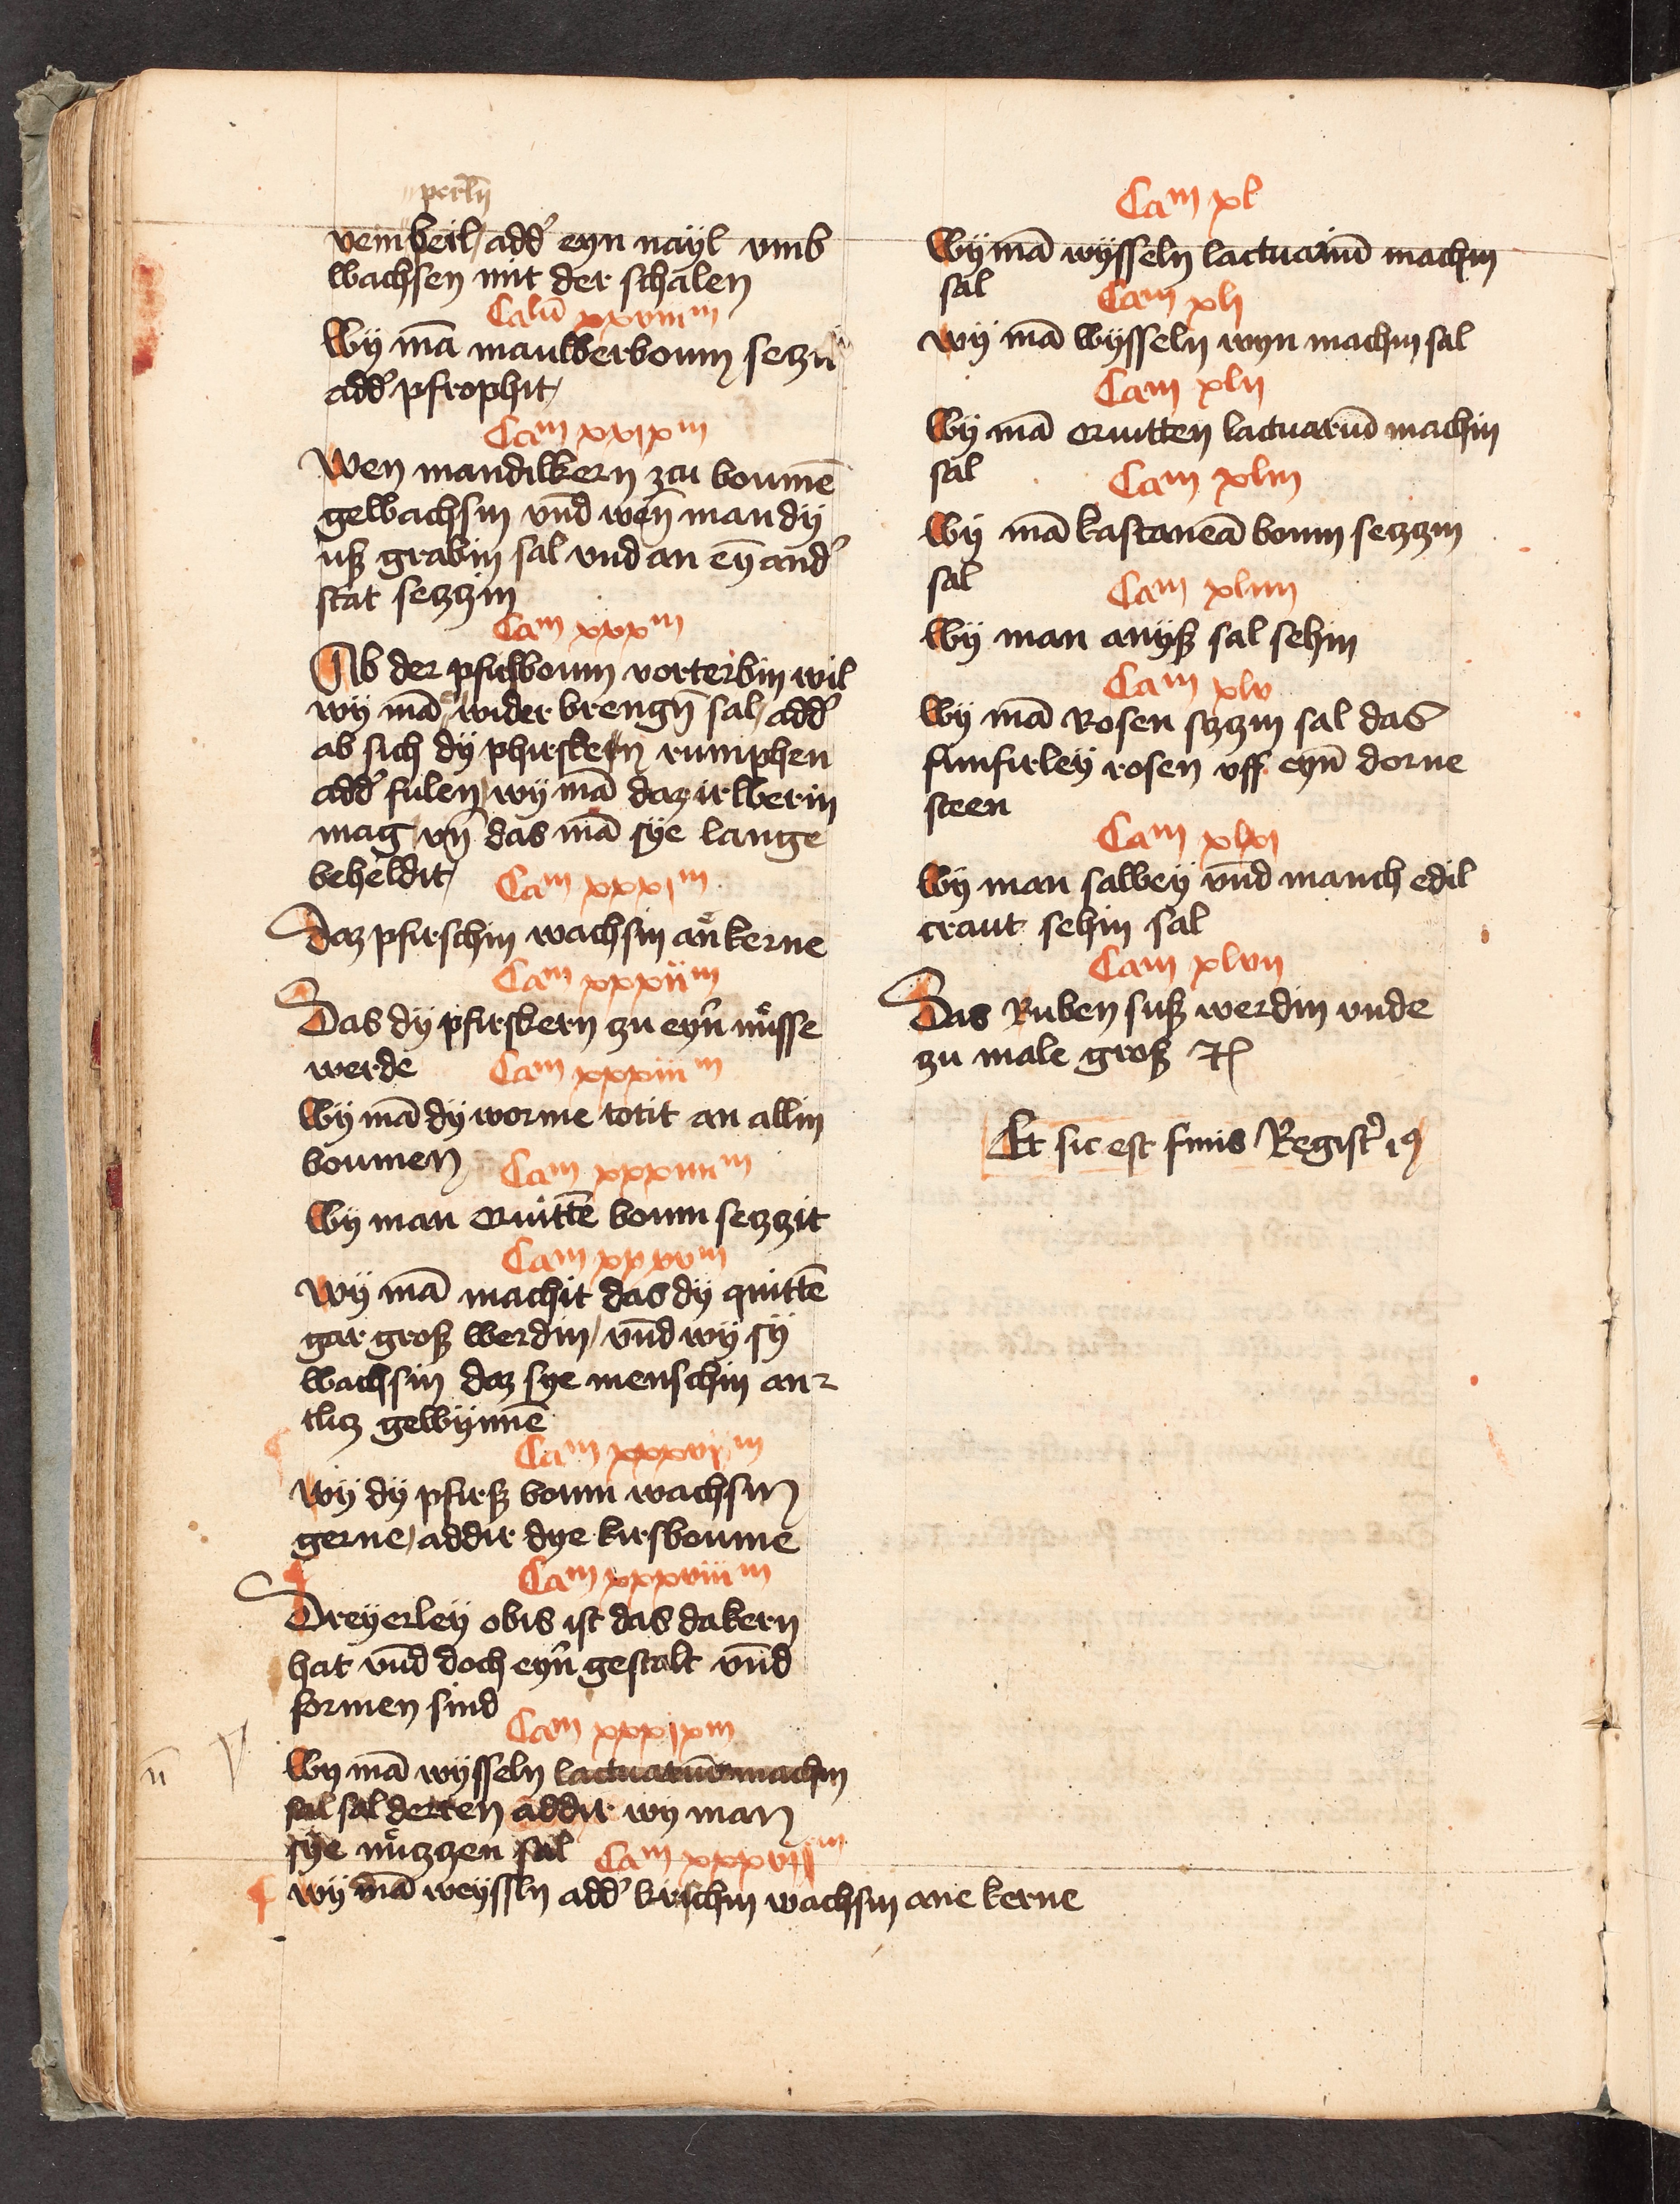 perlin
vein beil / add' eyn nayl vmb
wachsen mit der schalen
Calū xxviiiᵐ
Wy mā maulberboum setzn
add' pfrophit /
Caᵐ xxixᵐ
Wen mandilkern zcu boumē
gewachsin vnd wen man dy
uß grabin sal vnd an ey and'
stat setzzin
Caᵐ xxxᵐ
Ab der pfirsboum vorterbin wil
wy mā wider brengn sal / add'
ab sich dy phirsken rumphen
add' fulen / wy mā daz irwerin
mag / vn das mā sye lange
beheldit /
Caᵐ xxxiᵐ
Daz pfirschin wachsin an kerne
Caᵐ xxxiiᵐ
Das dy pfirskern zu eyn nůsse
werde
Caᵐ xxxiiiᵐ
Wy mā dy worme totit an allin
boumen
Caᵐ xxxiiiiᵐ
Wy man Quittē boum setzzit
Caᵐ xxxvᵐ
Wy mā machit das dy quittē
gar groß werdin / vnd wy sy
wachsin daz sye menschin an-
tlicz gewynnē
Caᵐ xxxviᵐ
Wy dy pfirß boum wachsin
gerne / addir dye kirsboume
Caᵐ xxxviiiᵐ
Dreyerley obis ist das da kern
hat vnd doch eyn gestalt vnd
formen sind
Caᵐ xxxixᵐ
Wy mā wysseln lactuariū machin
sal sal derren addir wy man
sye nůtzzen sal
Caᵐ xxxviiᵐ
Wy mā weyssln add' kirschin wachsin ane kerne
Caᵐ xl
Wy mā wysseln lactuariū machin
sal
Caᵐ xli
Wy mā wysseln wyn machin sal
Caᵐ xlii
Wy mā Quitten lactuariū machin
sal
Caᵐ xliii
Wy mā kastaneā boum setzzin
sal
Caᵐ xliiii
Wy man anyß sal sehin
Caᵐ xlv
Wy mā Rosen sezzin sal das
funfirley rosen vff eyn dorne
steen
Caᵐ xlvi
Wy man salbey vnd manch edil
craut sehin sal
Caᵐ xlvii
Das Ruben suß werdin vnde
zu male groß
Et sic est finis Regist'